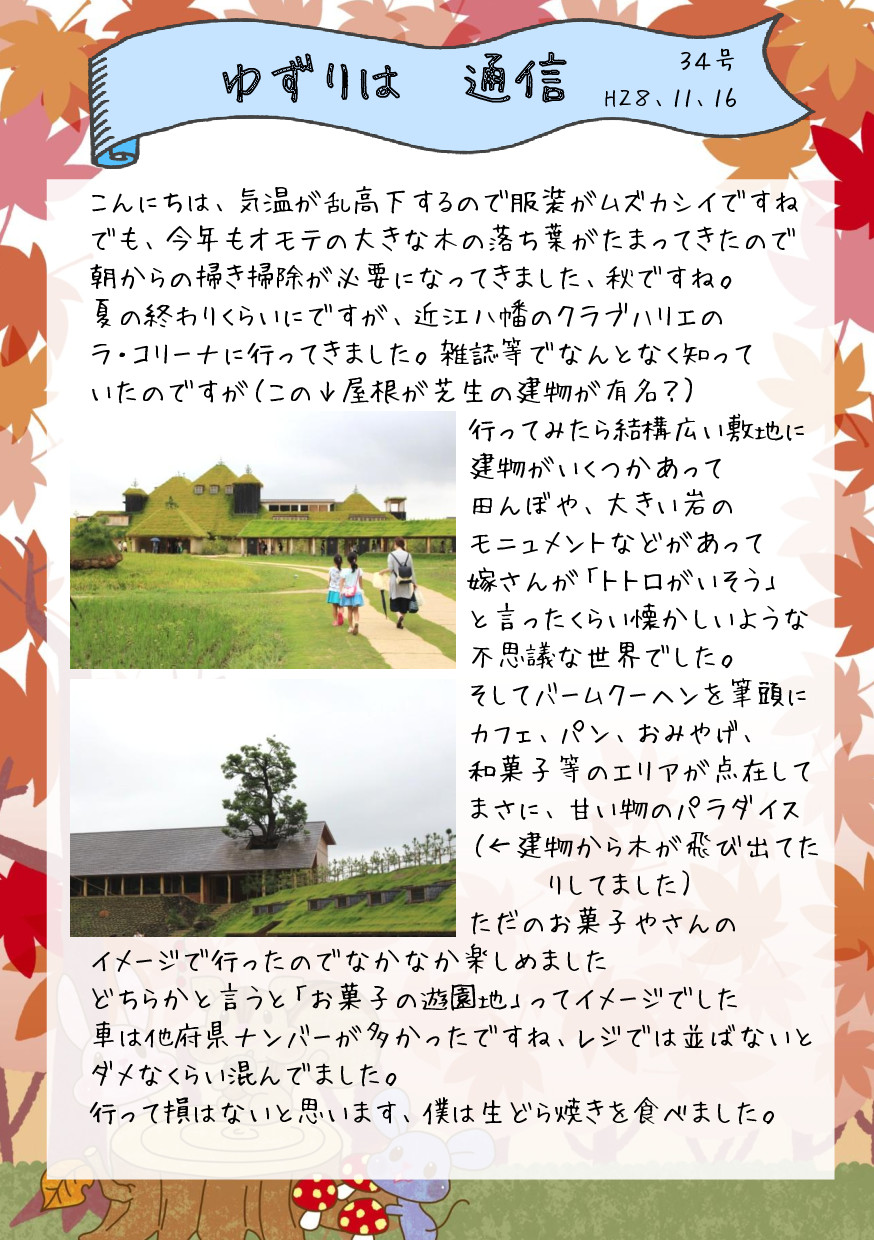 ゆずりは 通信
34号
H28、11、16
こんにちは、気温が乱高下するので服装がムズカシイですね
でも、今年もオモテの大きな木の落ち葉がたまってきたので
朝からの掃き掃除が必要になってきました、秋ですね。
夏の終わりくらいにですが、近江八幡のクラブハリエの
ラ・コリーナに行ってきました。雑誌等でなんとなく知って
いたのですが(この↓屋根が芝生の建物が有名?)
行ってみたら結構広い敷地に
建物がいくつかあって
田んぼや、大きい岩の
モニュメントなどがあって
嫁さんが「トトロがいそう」
と言ったくらい懐かしいような
不思議な世界でした。
そしてバームクーヘンを筆頭に
カフェ、パン、おみやげ、
和菓子等のエリアが点在して
まさに、甘い物のパラダイス
(←建物から木が飛び出てた
りしてました)
ただのお菓子やさんの
イメージで行ったのでなかなか楽しめました
どちらかと言うと「お菓子の遊園地」ってイメージでした
車は他府県ナンバーが多かったですね、レジでは並ばないと
ダメなくらい混んでました。
行って損はないと思います、僕は生どら焼きを食べました。